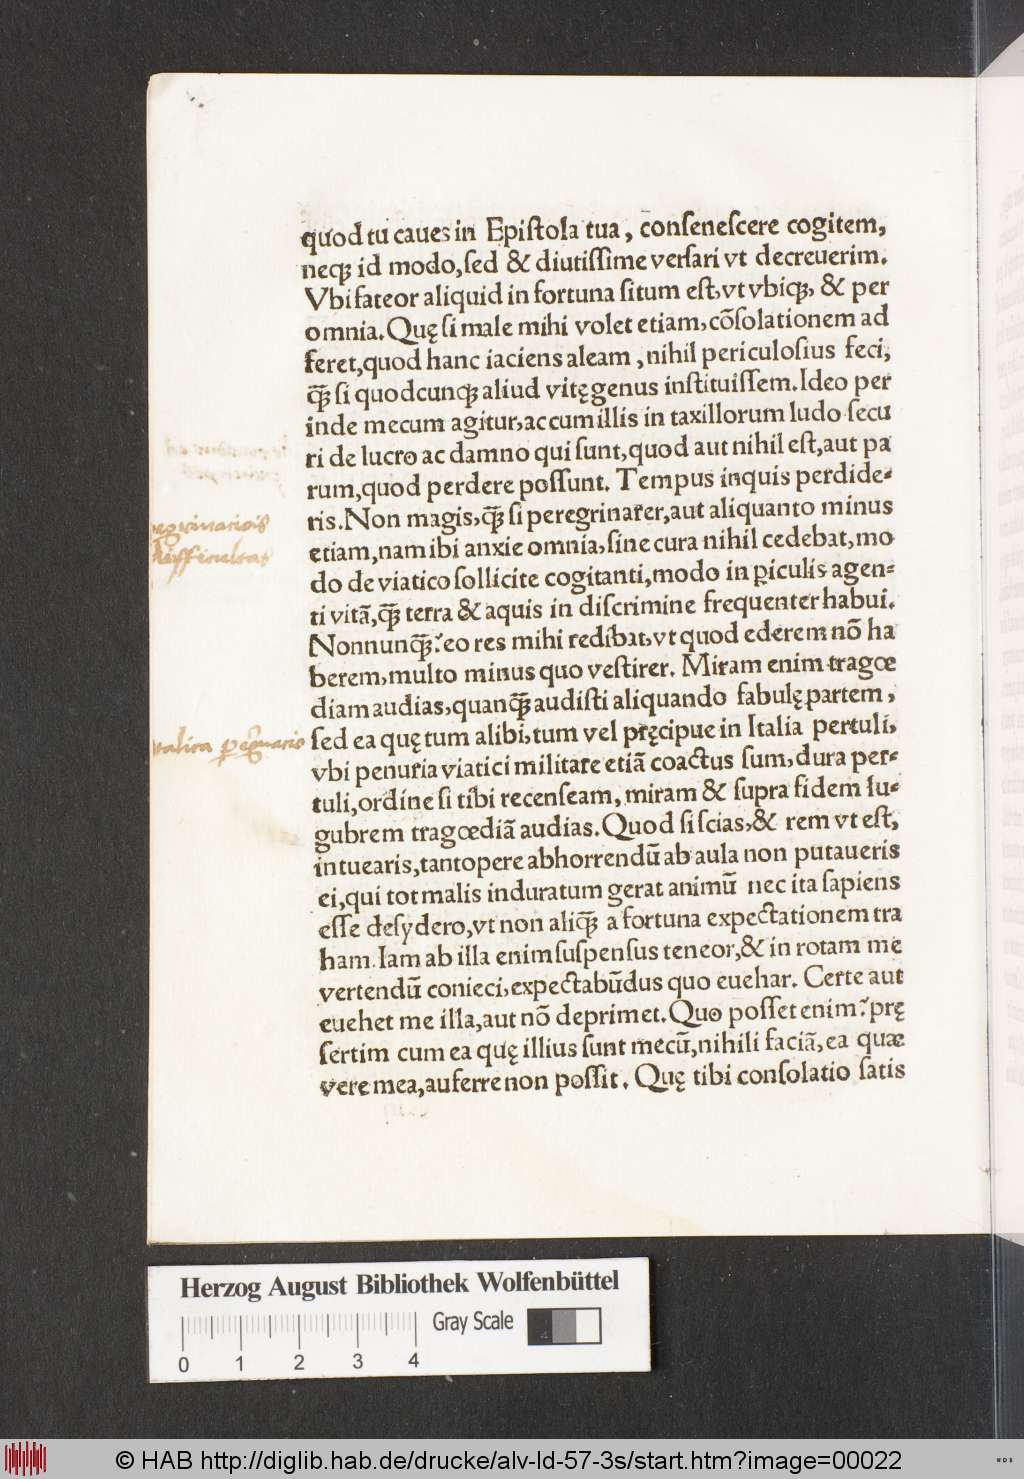 quod tu caues in Epiſtola tua, cōſeneſcere cogitem,
neqꝫ id modo, ſed & diutiſſime verſari vt decreuerim.
Vbi fateor aliquid in fortuna ſitum eſt, vt vbiqꝫ, & per
omnia. Quę ſi male mihi volet etiam, cōſolationem ad
feret, quod hanc iaciens aleam, nihil periculoſius feci,
q̄ꝫ ſi quodcunqꝫ aliud vitę genus inſtituiſſem. Ideo per
inde mecum agitur, ac cum illis in taxillorum ludo ſecu
ri de lucro ac damno qui ſunt, quod aut nihil eſt, aut pa
rum, quod perdere poſſunt. Tempus inquis perdide⸗
ris. Non magis, q̄ꝫ ſi peregrinarer, aut aliquanto minus
etiam, nam ibi anxie omnia, ſine cura nihil cedebat, mo
do de viatico ſollicite cogitanti, modo in ꝑiculis agen⸗
ti vitā, q̄ꝫ terra & aquis in diſcrimine frequenter habui.
Nonnunq̄ꝫ eo res mihi redibat, vt quod ederem nō ha
berem, multo minus quo veſtirer. Miram enim tragœ
diam audias, quanq̄ꝫ audiſti aliquando fabulę partem,
ſed ea quę tum alibi, tum vel pręcipue in Italia pertuli,
vbi penuria viatici militare etiā coactus ſum, dura per⸗
tuli, ordine ſi tibi recenſeam, miram & ſupra fidem lu⸗
gubrem tragœdiā audias. Quod ſi ſcias, & rem vt eſt,
intuearis, tantopere abhorrendū ab aula non putaueris
ei, qui tot malis induratum gerat animū nec ita ſapiens
eſſe deſydero, vt non aliq̄ꝫ a fortuna expectationem tra
ham. Iam ab illa enim ſuſpenſus teneor, & in rotam me
vertendū conieci, expectabūdus quo euehar. Certe aut
euehet me illa, aut nō deprimet. Quo poſſet enim? prę
ſertim cum ea quę illius ſunt mecū, nihili faciā, ea quæ
vere mea, auferre non poſſit. Quę tibi conſolatio ſatis
difficultas
Herzog August Bibliothek Wolfenbüttel
0 1 2 3 4
Gray Scale
© HAB http://diglib.hab.de/drucke/alv-ld-57-3s/start.htm?image=00022